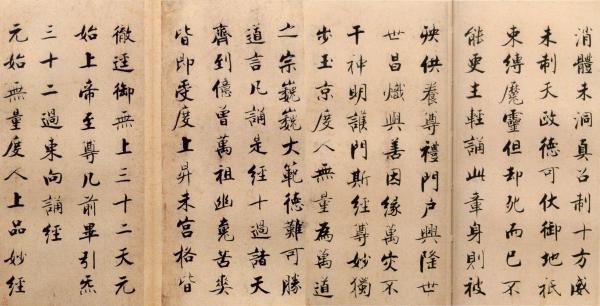 消體未洞真召制十方威
未制天政德可伏御地祇
束縛魔靈但却死而已不
能更生輕誦此章身則被
殃供養尊禮門户興隆世
世昌熾與善因緣萬灾不
干神明護門斯經尊妙獨
步玉京度人無量為萬道
之宗巍巍大範德難可勝
道言凡誦是經十過諸天
齊到億曾萬祖幽魂苦爽
皆即受度上昇朱宮格皆
徹逕御無上三十二天元
始上帝至尊几前畢引炁
三十二過東向誦經
元始無量度人上品妙經